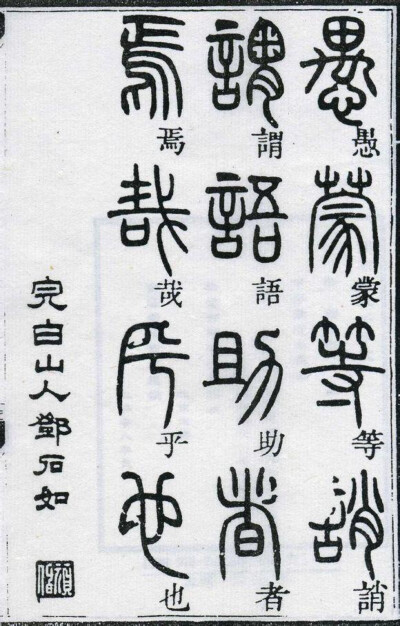 愚蒙等誚
謂語助者
焉哉乎也
完白山人鄧石如